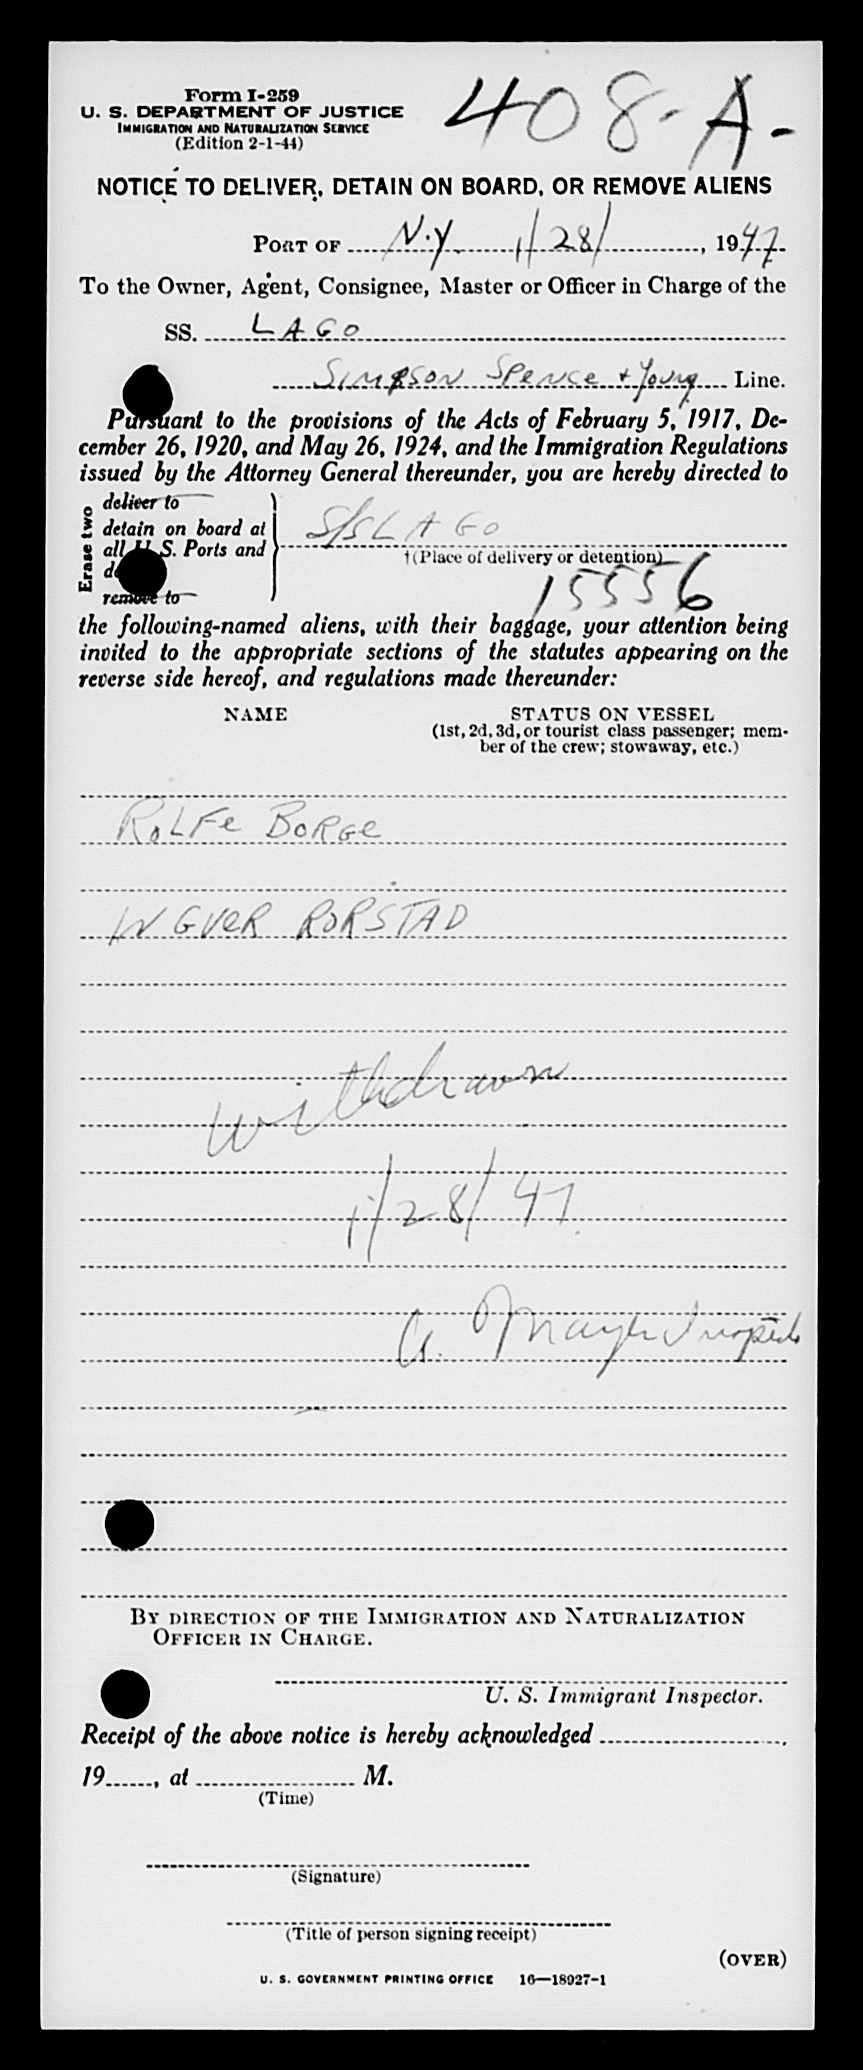 Form I-259
U. S. DEPARTMENT OF JUSTICE
IMMIGRATION AND NATURALIZATION SERVICE
(Edition 2-1-44)
408-A-
NOTICE TO DELIVER, DETAIN ON BOARD, OR REMOVE ALIENS
PORT OF N.Y. 1/28/, 1947
To the Owner, Agent, Consignee, Master or Officer in Charge of the
SS. LAGO
SIMPSON SPENCE + Young Line.
Pursuant to the provisions of the Acts of February 5, 1917, De-
cember 26, 1920, and May 26, 1924, and the Immigration Regulations
issued by the Attorney General thereunder, you are hereby directed to
Erase two
deliver to
detain on board at
all U. S. Ports and
remove to
S/S LAGO
†(Place of delivery or detention)
15556
the following-named aliens, with their baggage, your attention being
invited to the appropriate sections of the statutes appearing on the
reverse side hereof, and regulations made thereunder:
NAME STATUS ON VESSEL
(1st, 2d, 3d, or tourist class passenger; mem-
ber of the crew; stowaway, etc.)
ROLFe BORGe
INGVeR RORSTAD
withdrawn
1/28/47
By DIRECTION OF THE IMMIGRATION AND NATURALIZATION
OFFICER IN CHARGE.
U. S. Immigrant Inspector.
Receipt of the above notice is hereby acknowledged
19......, at M.
(Time)
(Signature)
(Title of person signing receipt)
(OVER)
U. S. GOVERNMENT PRINTING OFFICE 16—18927-1